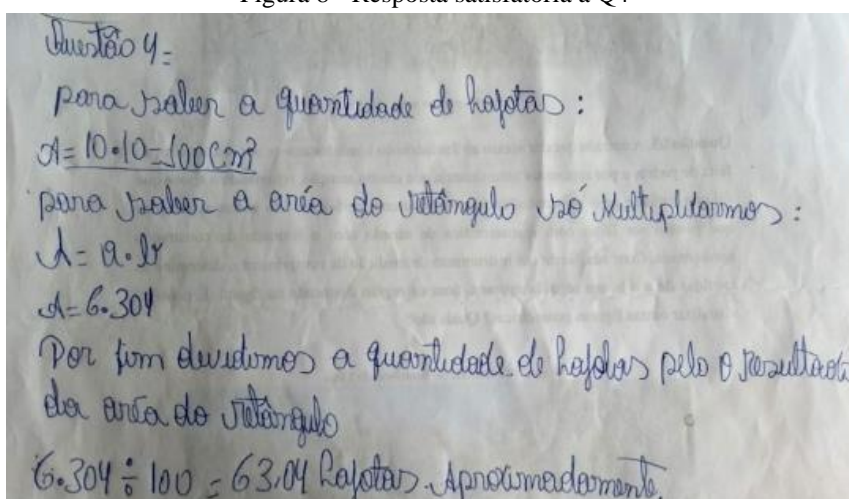 Figura 8 - Resposta satisfatória a Q4
Questão 4=
para saber a quantidade de lajotas:
A= 10•10=100Cm²
para saber a aréa do retângulo só Multiplicarmos:
A= a•b
A=6.304
Por fim devidimos a quantidade de lajotas pelo o resultado
da aréa do retângulo
6.304÷100=63,04 lajotas. Aproximadamente.